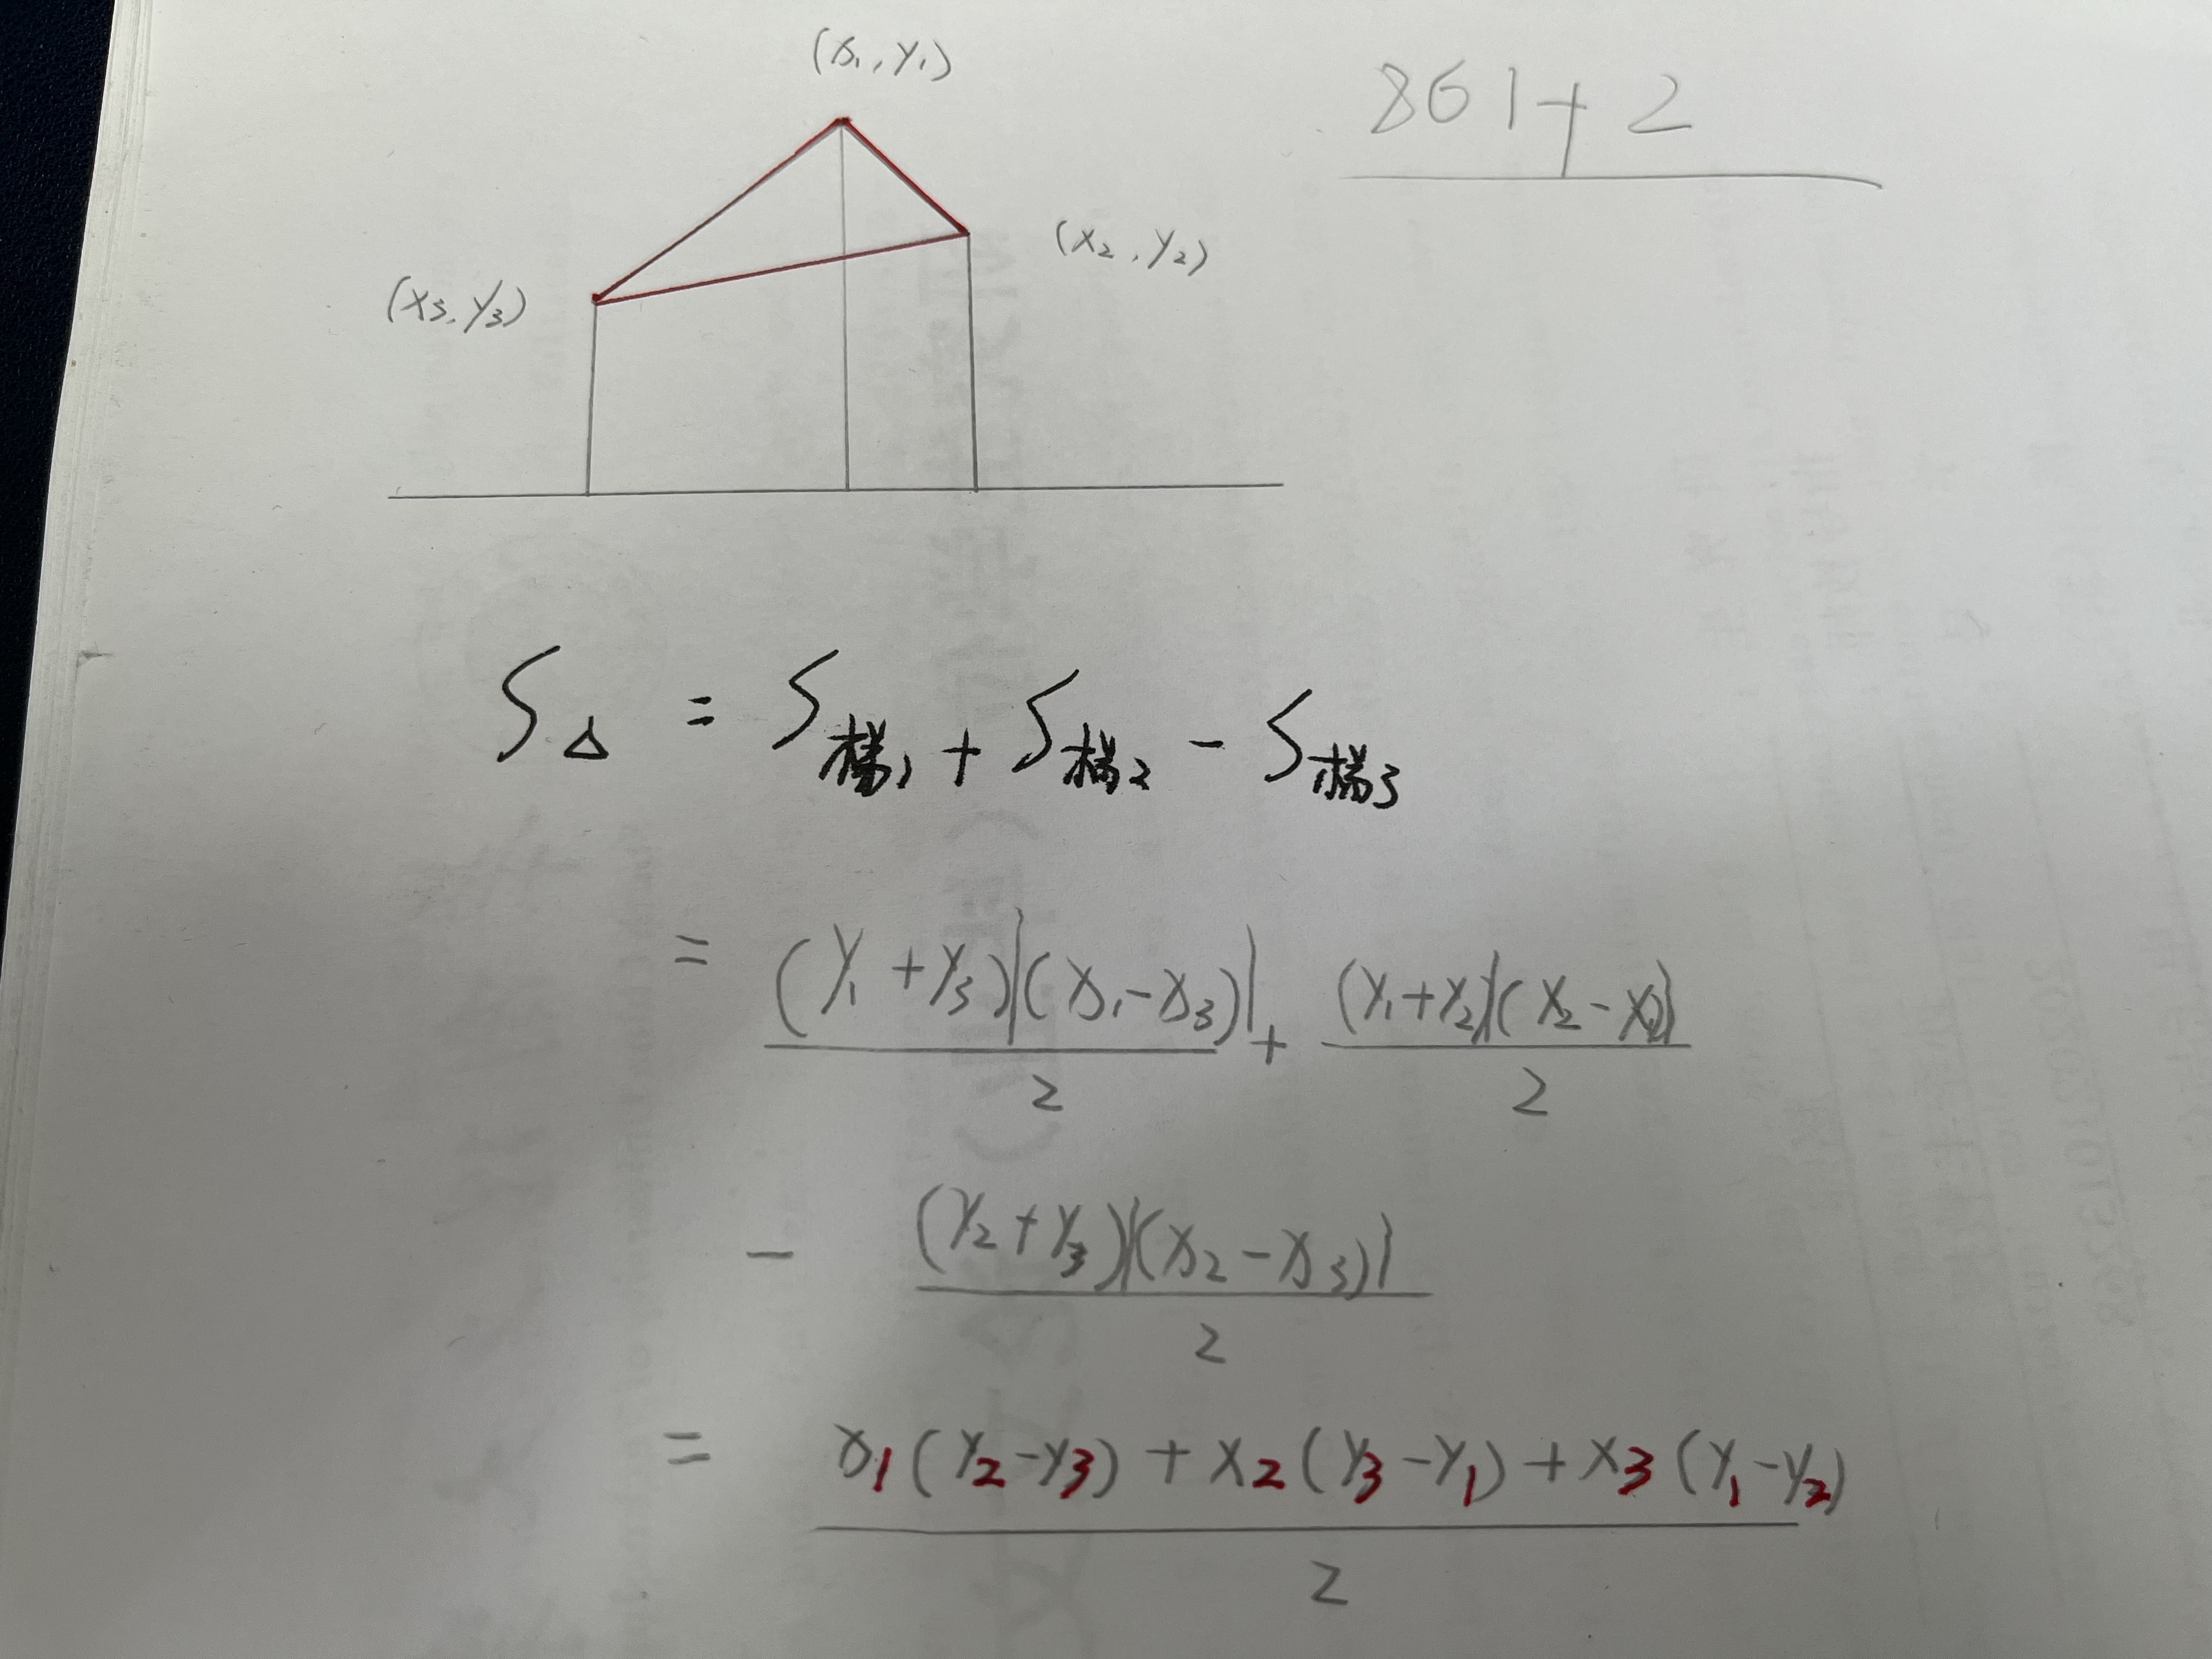 (x₁, y₁)
861+2
(x₂, y₂)
(x₃, y₃)
S△ = S梯1 + S梯2 - S梯3
= (y₁+y₃)|(x₁-x₃)|/2 + (y₁+y₂)|(x₂-x₁)|/2
- (y₂+y₃)|(x₂-x₃)|/2
= x₁(y₂-y₃)+x₂(y₃-y₁)+x₃(y₁-y₂)/2